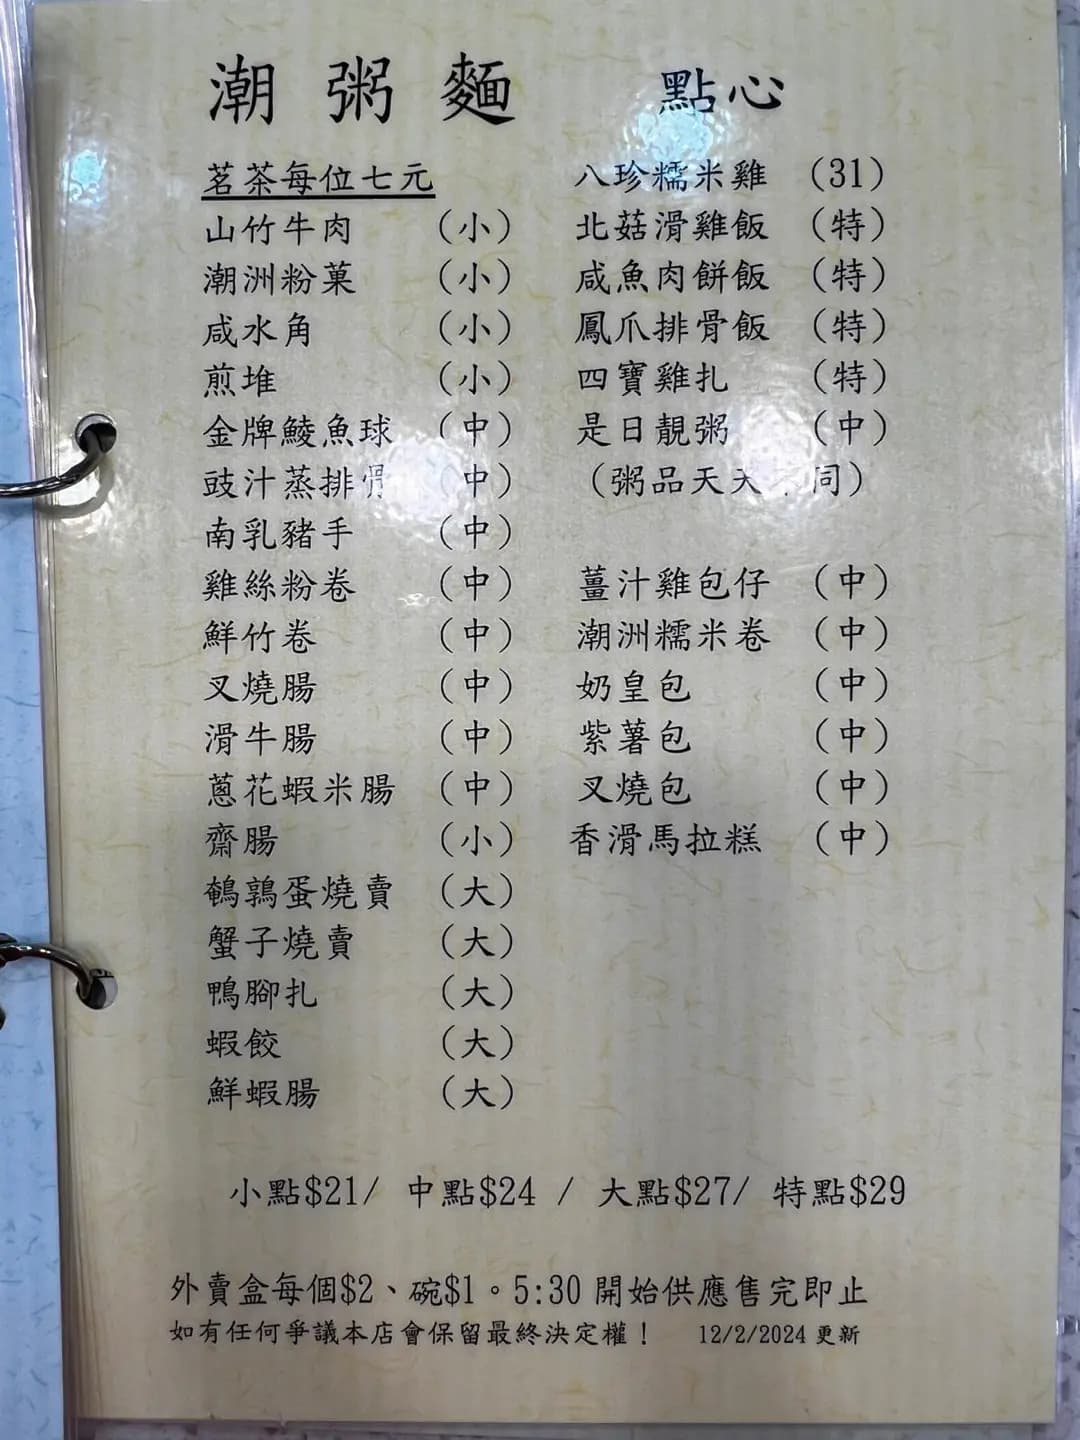 潮粥麵 點心
茗茶每位七元
山竹牛肉 (小)
潮洲粉菓 (小)
咸水角 (小)
煎堆 (小)
金牌鯪魚球 (中)
豉汁蒸排骨 (中)
南乳豬手 (中)
雞絲粉卷 (中)
鮮竹卷 (中)
叉燒腸 (中)
滑牛腸 (中)
蔥花蝦米腸 (中)
齋腸 (小)
鵪鶉蛋燒賣 (大)
蟹子燒賣 (大)
鴨腳扎 (大)
蝦餃 (大)
鮮蝦腸 (大)
八珍糯米雞 (31)
北菇滑雞飯 (特)
咸魚肉餅飯 (特)
鳳爪排骨飯 (特)
四寶雞扎 (特)
是日靚粥 (中)
(粥品天天不同)
薑汁雞包仔 (中)
潮洲糯米卷 (中)
奶皇包 (中)
紫薯包 (中)
叉燒包 (中)
香滑馬拉糕 (中)
小點$21/ 中點$24 / 大點$27/ 特點$29
外賣盒每個$2、碗$1。5:30 開始供應售完即止
如有任何爭議本店會保留最終決定權! 12/2/2024 更新